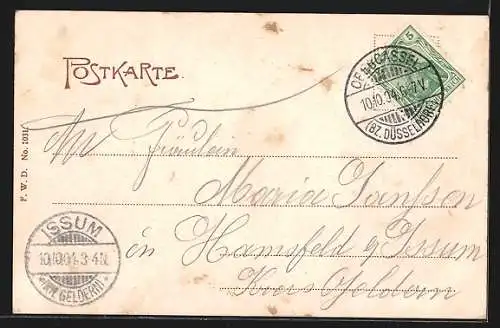 POSTKARTE.
5
CREFCASSEL
10.10.04.6-7V.
(BZ. DÜSSELDORF)
F. W. D. No. 1031
An Fräulein
Maria Janssen
in Hamsfeld b/Issum
Kreis Geldern
ISSUM
10.10.04.3-4N.
(KR. GELDERN)